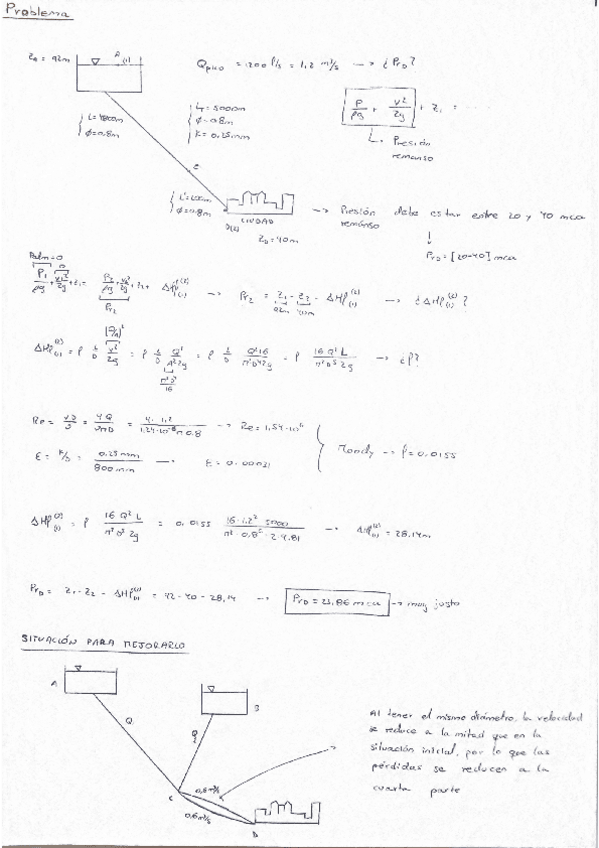 Problema
Z_A = 92m
A
(1)
Q_pico = 1200 l/s = 1,2 m³/s → ¿P_rD?
L = 4400m
φ = 0.8m
L_T = 5000m
φ = 0.8m
K = 0.25mm
P/ρg + v²/2g + z₁ = ......
Presión
remanso
C
L = 600m
φ = 0.8m
D(2)
CIUDAD
Z_D = 40m
→ Presión debe estar entre 20 y 40 mca
remanso
P_rD = [20-40] mca
Patm = 0
0
P₁/ρg + v₁²/2g + z₁ = P₂/ρg + v₂²/2g + z₂ + ΔHf₍₁₎⁽²⁾ → P_r2 = z₁ - z₂ - ΔHf₍₁₎⁽²⁾ → ¿ΔHf₍₁₎⁽²⁾?
P_r2
92m
40m
(Q/A)²
ΔHf₍₁₎⁽²⁾ = f L/D v²/2g = f L/D Q²/A²2g = f L/D Q²16/π²D⁴2g = f 16Q²L/π²D⁵2g → ¿f?
π²D⁴
16
Re = vD/ν = 4Q/νπD = 4·1,2/1.24·10⁻⁶π0.8 → Re = 1,54·10⁶
ε = K/D = 0.25mm/800mm → ε = 0.00031
Moody → f = 0.0155
ΔHf₍₁₎⁽²⁾ = f 16Q²L/π²D⁵2g = 0.0155 16·1.2²·5000/π²·0.8⁵·2·9.81 → ΔHf₍₁₎⁽²⁾ = 28,14m
P_rD = z₁ - z₂ - ΔHf₍₁₎⁽²⁾ = 92 - 40 - 28,14 → P_rD = 23,86 mca → muy justo
SITUACIÓN PARA MEJORARLO
A
B
Q
Q
C
0,6 m³/s
0.6 m³/s
D
Al tener el mismo diámetro, la velocidad
se reduce a la mitad que en la
situación inicial, por lo que las
pérdidas se reducen a la
cuarta parte